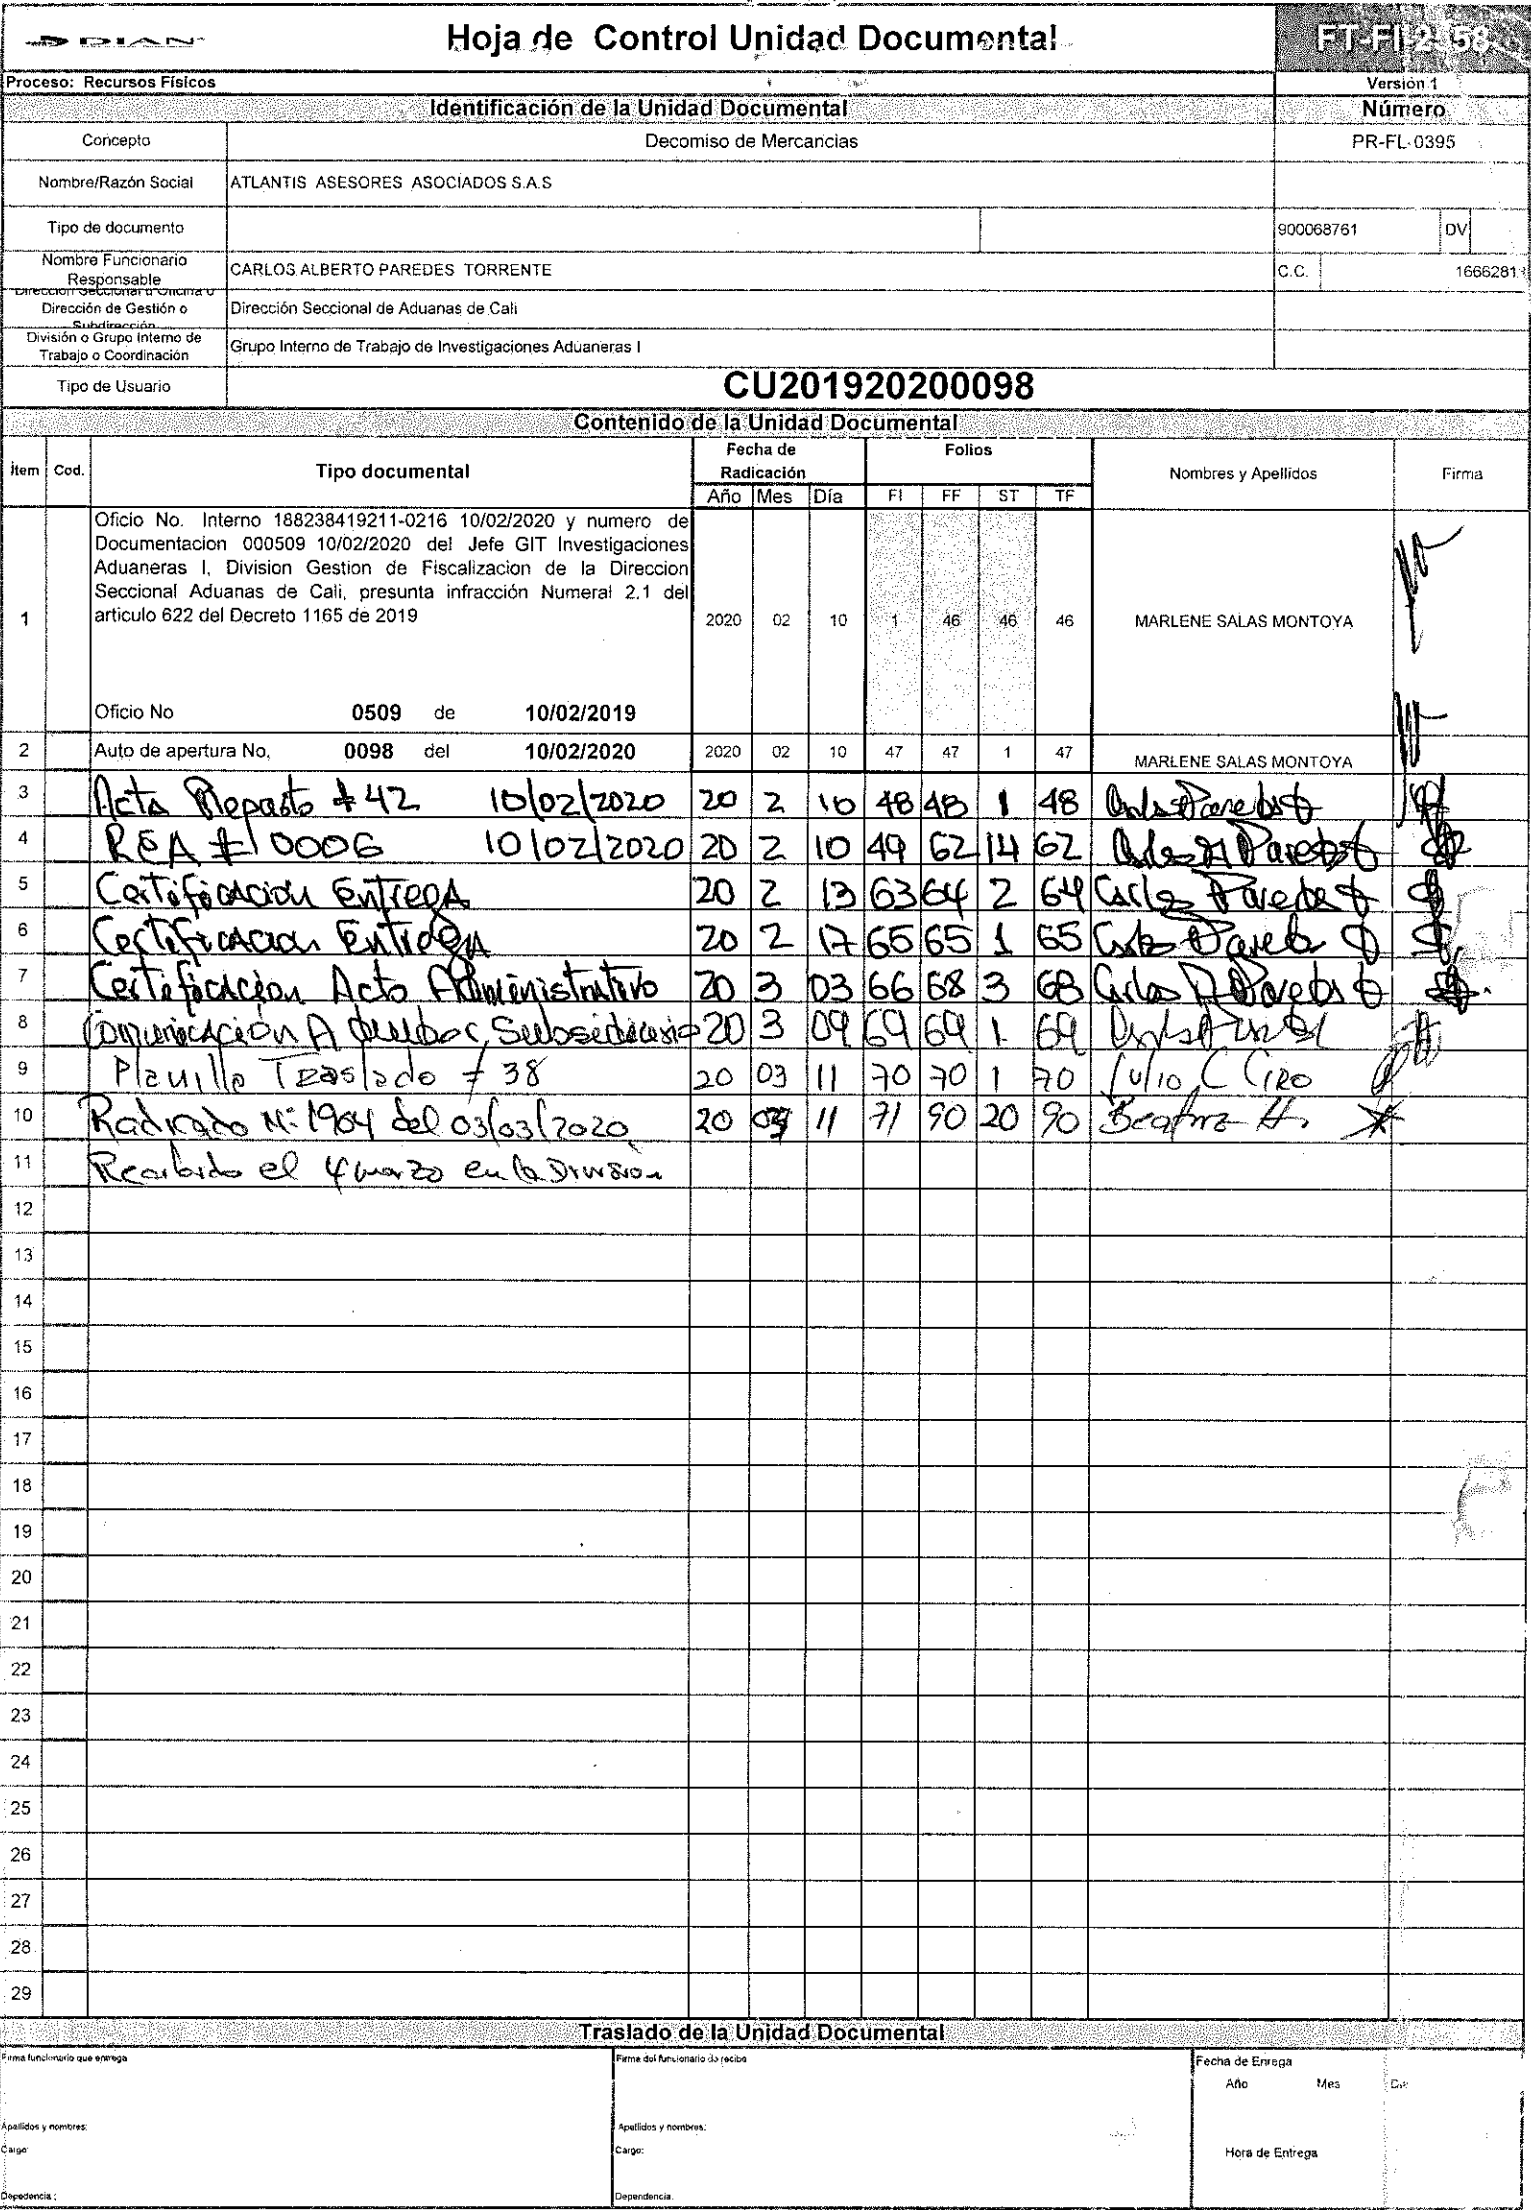 DIAN
Hoja de Control Unidad Documental
Proceso: Recursos Físicos
Versión 1
Identificación de la Unidad Documental
Número
Concepto
Decomiso de Mercancias
PR-FL-0395
Nombre/Razón Social
ATLANTIS ASESORES ASOCIADOS S.A.S
Tipo de documento
900068761 DV
Nombre Funcionario
Responsable
CARLOS ALBERTO PAREDES TORRENTE
C.C.
Dirección de Gestión o
Subdirección
Dirección Seccional de Aduanas de Cali
División o Grupo Interno de
Trabajo o Coordinación
Grupo Interno de Trabajo de Investigaciones Aduaneras I
Tipo de Usuario
CU201920200098
Contenido de la Unidad Documental
Ítem Cod. Tipo documental
Fecha de
Radicación
Año Mes Día
Folios
FI FF ST TF
Nombres y Apellidos
Firma
1
Oficio No. Interno 188238419211-0216 10/02/2020 y numero de
Documentacion 000509 10/02/2020 del Jefe GIT Investigaciones
Aduaneras I, Division Gestion de Fiscalizacion de la Direccion
Seccional Aduanas de Cali, presunta infracción Numeral 2.1 del
articulo 622 del Decreto 1165 de 2019
2020 02 10 1 46 46 46 MARLENE SALAS MONTOYA
Oficio No 0509 de 10/02/2019
2 Auto de apertura No. 0098 del 10/02/2020 2020 02 10 47 47 1 47 MARLENE SALAS MONTOYA
3 Acta Reparto #42 10/02/2020 20 2 10 48 48 1 48
4 REA # 0006 10/02/2020 20 2 10 49 62 14 62 Carlos A Paredes t
5 Certificación Entrega 20 2 13 63 64 2 64 Carlos Paredes t
6 Certificacion Entrega 20 2 17 65 65 1 65 Carlos Paredes
7 Certificación Acto Administrativo 20 3 03 66 68 3 68 Carlos A Paredes t
8 Comunicación A Subsidiario 20 3 09 69 69 1 69
9 Planilla Traslado # 38 20 03 11 70 70 1 70 Julio C Ciro
10 Radicado Nº 1904 del 03/03/2020 20 03 11 71 90 20 90 Beatriz H.
11 Recibido el 4 marzo en la División
12
13
14
15
16
17
18
19
20
21
22
23
24
25
26
27
28
29
Traslado de la Unidad Documental
Firma funcionario que entrega
Firma del funcionario que recibe
Fecha de Enrega
Año Mes Día
Apellidos y nombres:
Apellidos y nombres:
Cargo:
Cargo:
Hora de Entrega
Depedencia :
Dependencia: